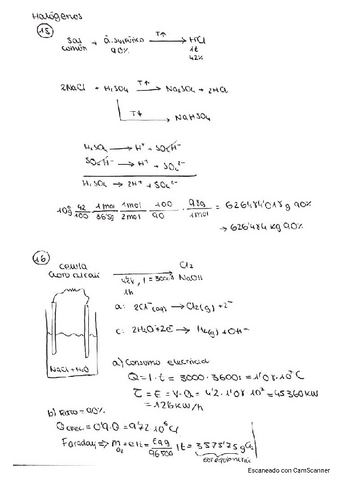 Halógenos
15
Sal común + á. sulfúrico 90% T↑ → HCl 1t 42%
2NaCl + H₂SO₄ T↑ → Na₂SO₄ + 2HCl
T↓ → NaHSO₄
H₂SO₄ → H⁺ + SO₄H⁻
SO₄H⁻ → H⁺ + SO₄²⁻
H₂SO₄ → 2H⁺ + SO₄²⁻
10⁶g · 42/100 · 1mol/36'5g · 1mol/2mol · 100/90 · 98g/1mol = 626484'018 g 90%
→ 626'484 kg 90%
16
celula cloro alcali → Cl₂ NaOH
I = 3000A
1h
a: 2Cl⁻(aq) → Cl₂(g) + 2e⁻
c: 2H₂O + 2e⁻ → H₂(g) + OH⁻
NaCl + H₂O
a) Consumo electrico
Q = I · t = 3000 · 3600s = 1'08 · 10⁷C
= E = V · Q = 4'2 · 1'08 · 10⁷ = 45360KW
= 12'6 KW/h
b) Rto = 90%
= 0'9 · Q = 9'72 · 10⁶C
Faraday ⇒ m = = Eqg/96500 · It = 3575'75 g